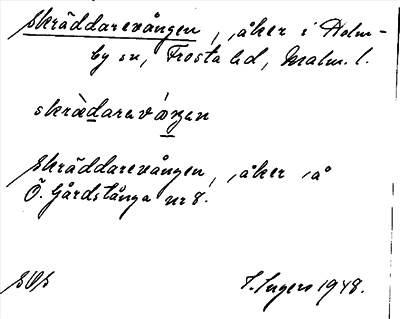 Skräddarevången, åker i Holm-
by sn, Frosta hd, Malm. l.
skrädaravången
Skräddarevången, åker å
Ö. Gårdstånga nr 8.
I. Ingers 1948.